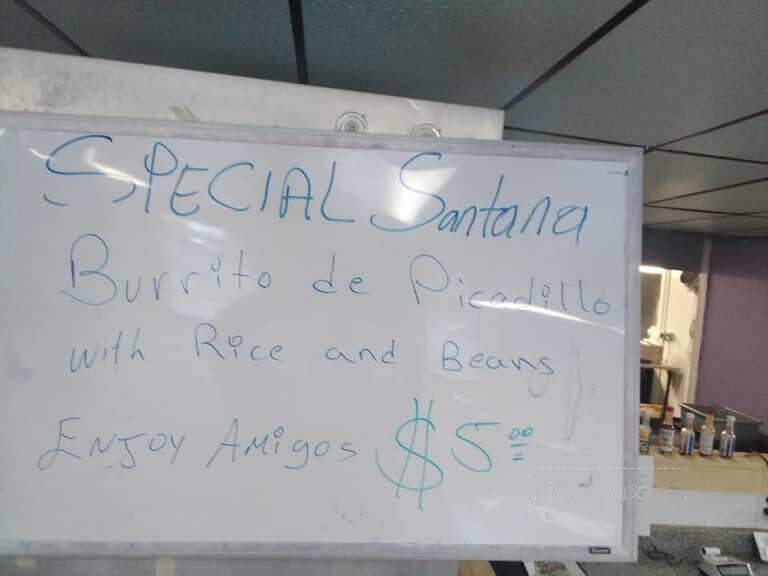 SPECIAL Santana
Burrito de Picadillo
with Rice and Beans
ENJOY AMigos $5.00